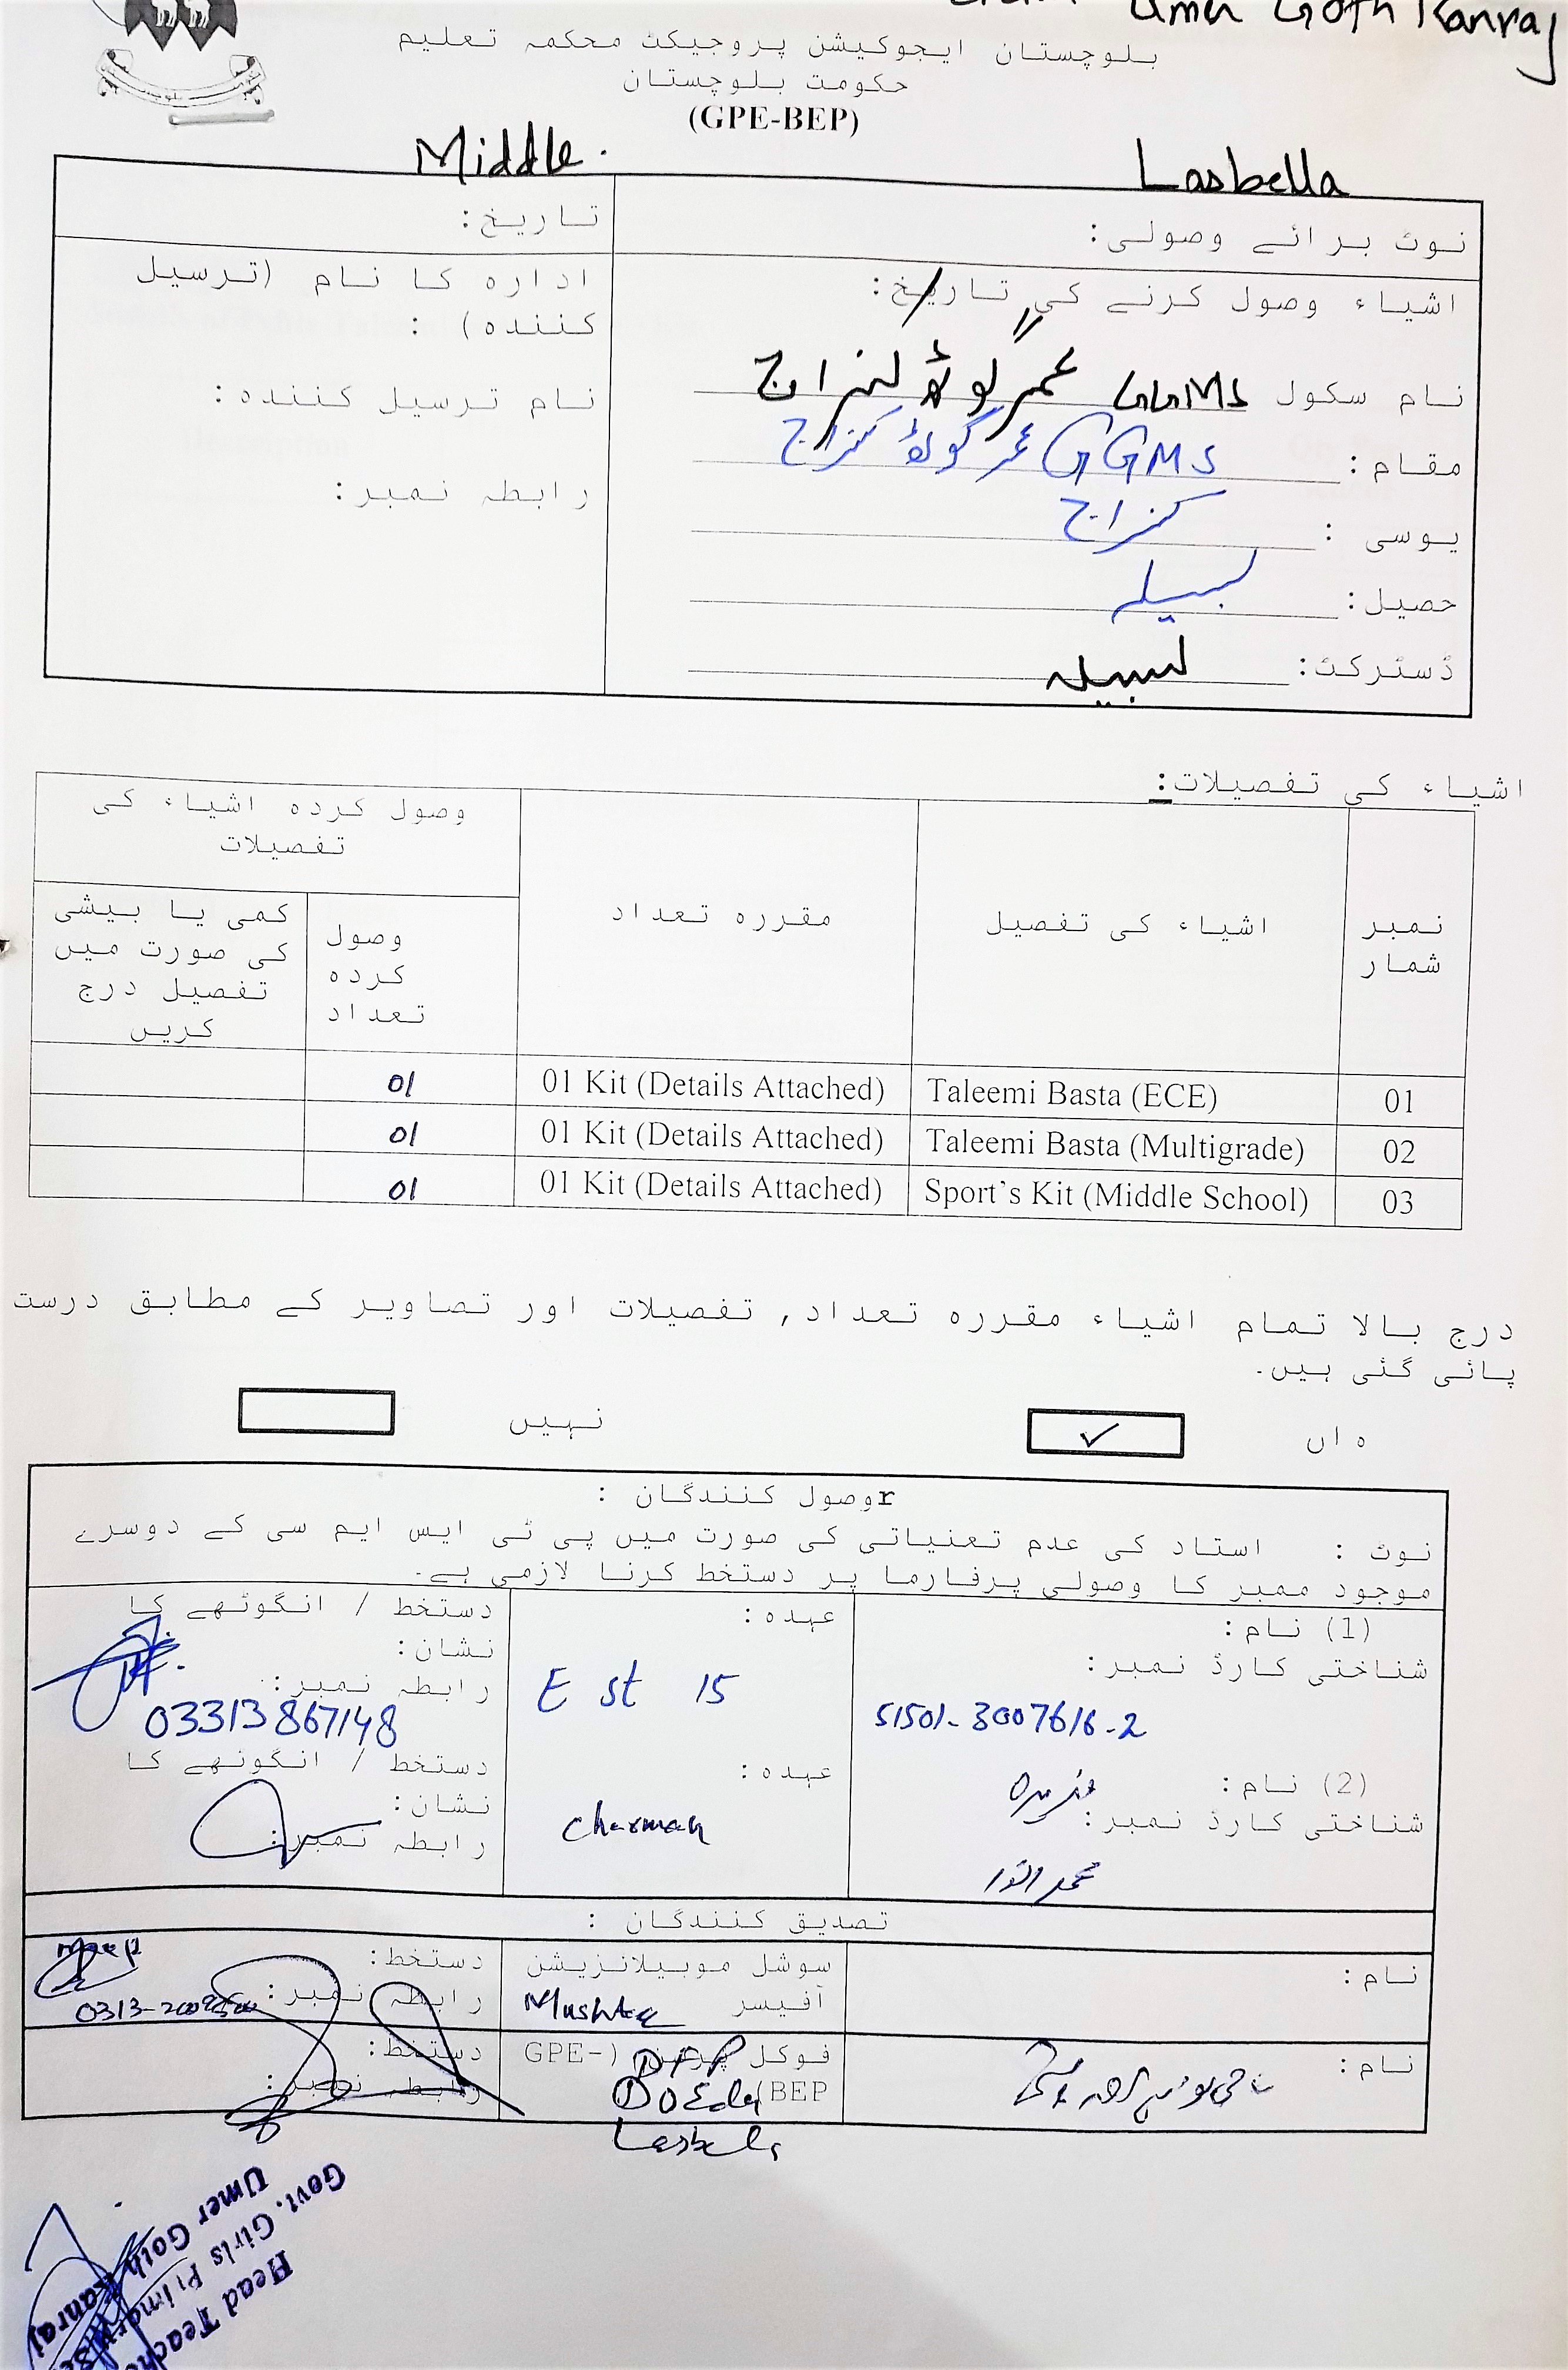 Umer Goth Kanraj
بلوچستان ایجوکیشن پروجیکٹ محکمہ تعلیم
حکومت بلوچستان
(GPE-BEP)
Middle.
Lasbella
نوٹ برائے وصولی:
تاریخ:
اشیاء وصول کرنے کی تاریخ:
ادارہ کا نام (ترسیل کنندہ) :
نام سکول GGMS عمر گوٹھ کنراج
نام ترسیل کنندہ:
مقام: GGMS عمر گوٹھ کنراج
رابطہ نمبر:
یوسی : کنراج
حصیل: لسبیلہ
ڈسٹرکٹ: لسبیلہ
اشیاء کی تفصیلات:
نمبر شمار
اشیاء کی تفصیل
مقررہ تعداد
وصول کردہ اشیاء کی تفصیلات
وصول کردہ تعداد
کمی یا بیشی کی صورت میں تفصیل درج کریں
01 Taleemi Basta (ECE) 01 Kit (Details Attached) 01
02 Taleemi Basta (Multigrade) 01 Kit (Details Attached) 01
03 Sport's Kit (Middle School) 01 Kit (Details Attached) 01
درج بالا تمام اشیاء مقررہ تعداد, تفصیلات اور تصاویر کے مطابق درست
پائی گئی ہیں.
ہاں ✓ نہیں
rوصول کنندگان :
نوٹ : استاد کی عدم تعنیاتی کی صورت میں پی ٹی ایس ایم سی کے دوسرے
موجود ممبر کا وصولی پرفارما پر دستخط کرنا لازمی ہے.
(1) نام:
شناختی کارڈ نمبر:
51501-3007616-2
عہدہ:
E st 15
دستخط / انگوٹھے کا
نشان:
رابطہ نمبر:
03313867148
(2) نام:
شناختی کارڈ نمبر:
عہدہ:
Charman
دستخط / انگوٹھے کا
نشان:
رابطہ نمبر:
تصدیق کنندگان :
نام:
سوشل موبیلائزیشن
آفیسر Mushtaq
دستخط:
رابطہ نمبر:
نام:
فوکل پرسن (GPE-
BEP)
DFP
DOEdu
Lasbela
دستخط:
رابطہ نمبر:
Head Teacher
Govt. Girls Primary
Umer Goth Kanraj